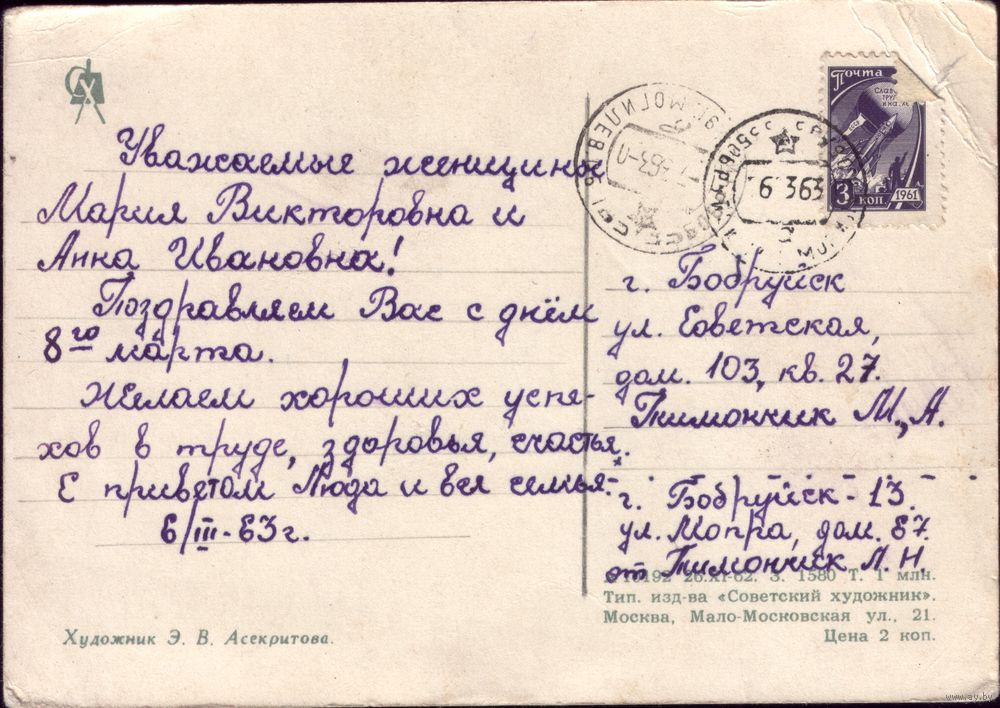 Уважаемые женщины
Мария Викторовна и
Анна Ивановна!
Поздравляем Вас с днём
8го марта.
Желаем хороших успе-
хов в труде, здоровья, счастья.
С приветом Люда и вся семья.
6/III-63г.
Художник Э. В. Асекритова.
Почта
3 коп. 1961
МОГИЛЕВ
6 3 63
г. Бобруйск
ул. Советская,
дом. 103, кв. 27.
Тимончик М., А.
г. Бобруйск-13
ул. Мопра, дом. 87.
от Тимончик Л. Н.
26.XI-62. З. 1580 Т. 1 млн.
Тип. изд-ва «Советский художник».
Москва, Мало-Московская ул., 21.
Цена 2 коп.
www.ay.by